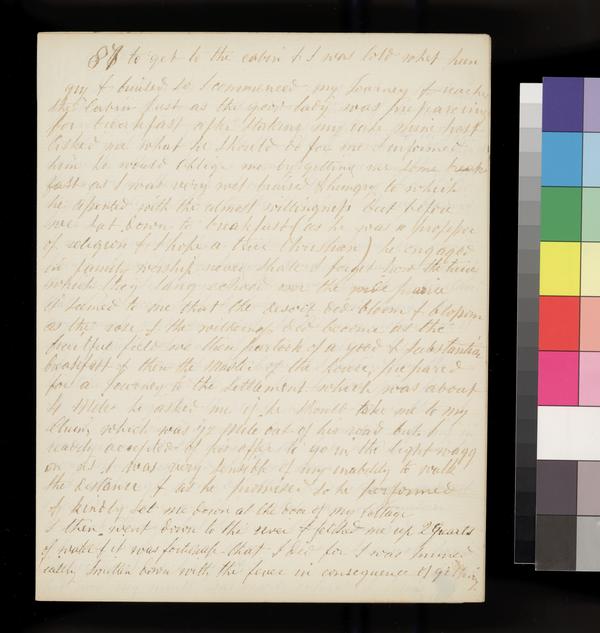 87 to get to the cabin & I was told what hun
gry & bruised so I commenced my Journey & reache
the Cabin just as the good lady was prepareing
for breakfast after stateing my case mine host
asked me what he should do for me I informed
him he would Oblige me by getting me some break
fast as I was very wet bruised & hungry to which
he assented with the utmost willingness but before
we sat down to breakfast (as he was a professor
of religion & I hope a true Christian) he engaged
in family worship never shall I forget how the tune
which they sang echoed over the wide prarie
it seemed to me that the desert did bloom & blossom
as the rose & the wilderness did become as the
fruitful field we then partook of a good & substantial
breakfast & then the Master of the house prepared
for a journey to the Settlement which was about
4 Miles he asked me if he should take me to my
Claim which was Mile out of his road but I
readily accepted of his offer to go in the light wagg
on as I was very sensible of my inability to walk
the distance & as he promised so he performed
& kindly set me down at the door of my cottage
I then went down to the river & fetched me up 2 Quarts
of water & it was fortunate that I did for I was immed
iately smitten down with the fever in consequence of getting